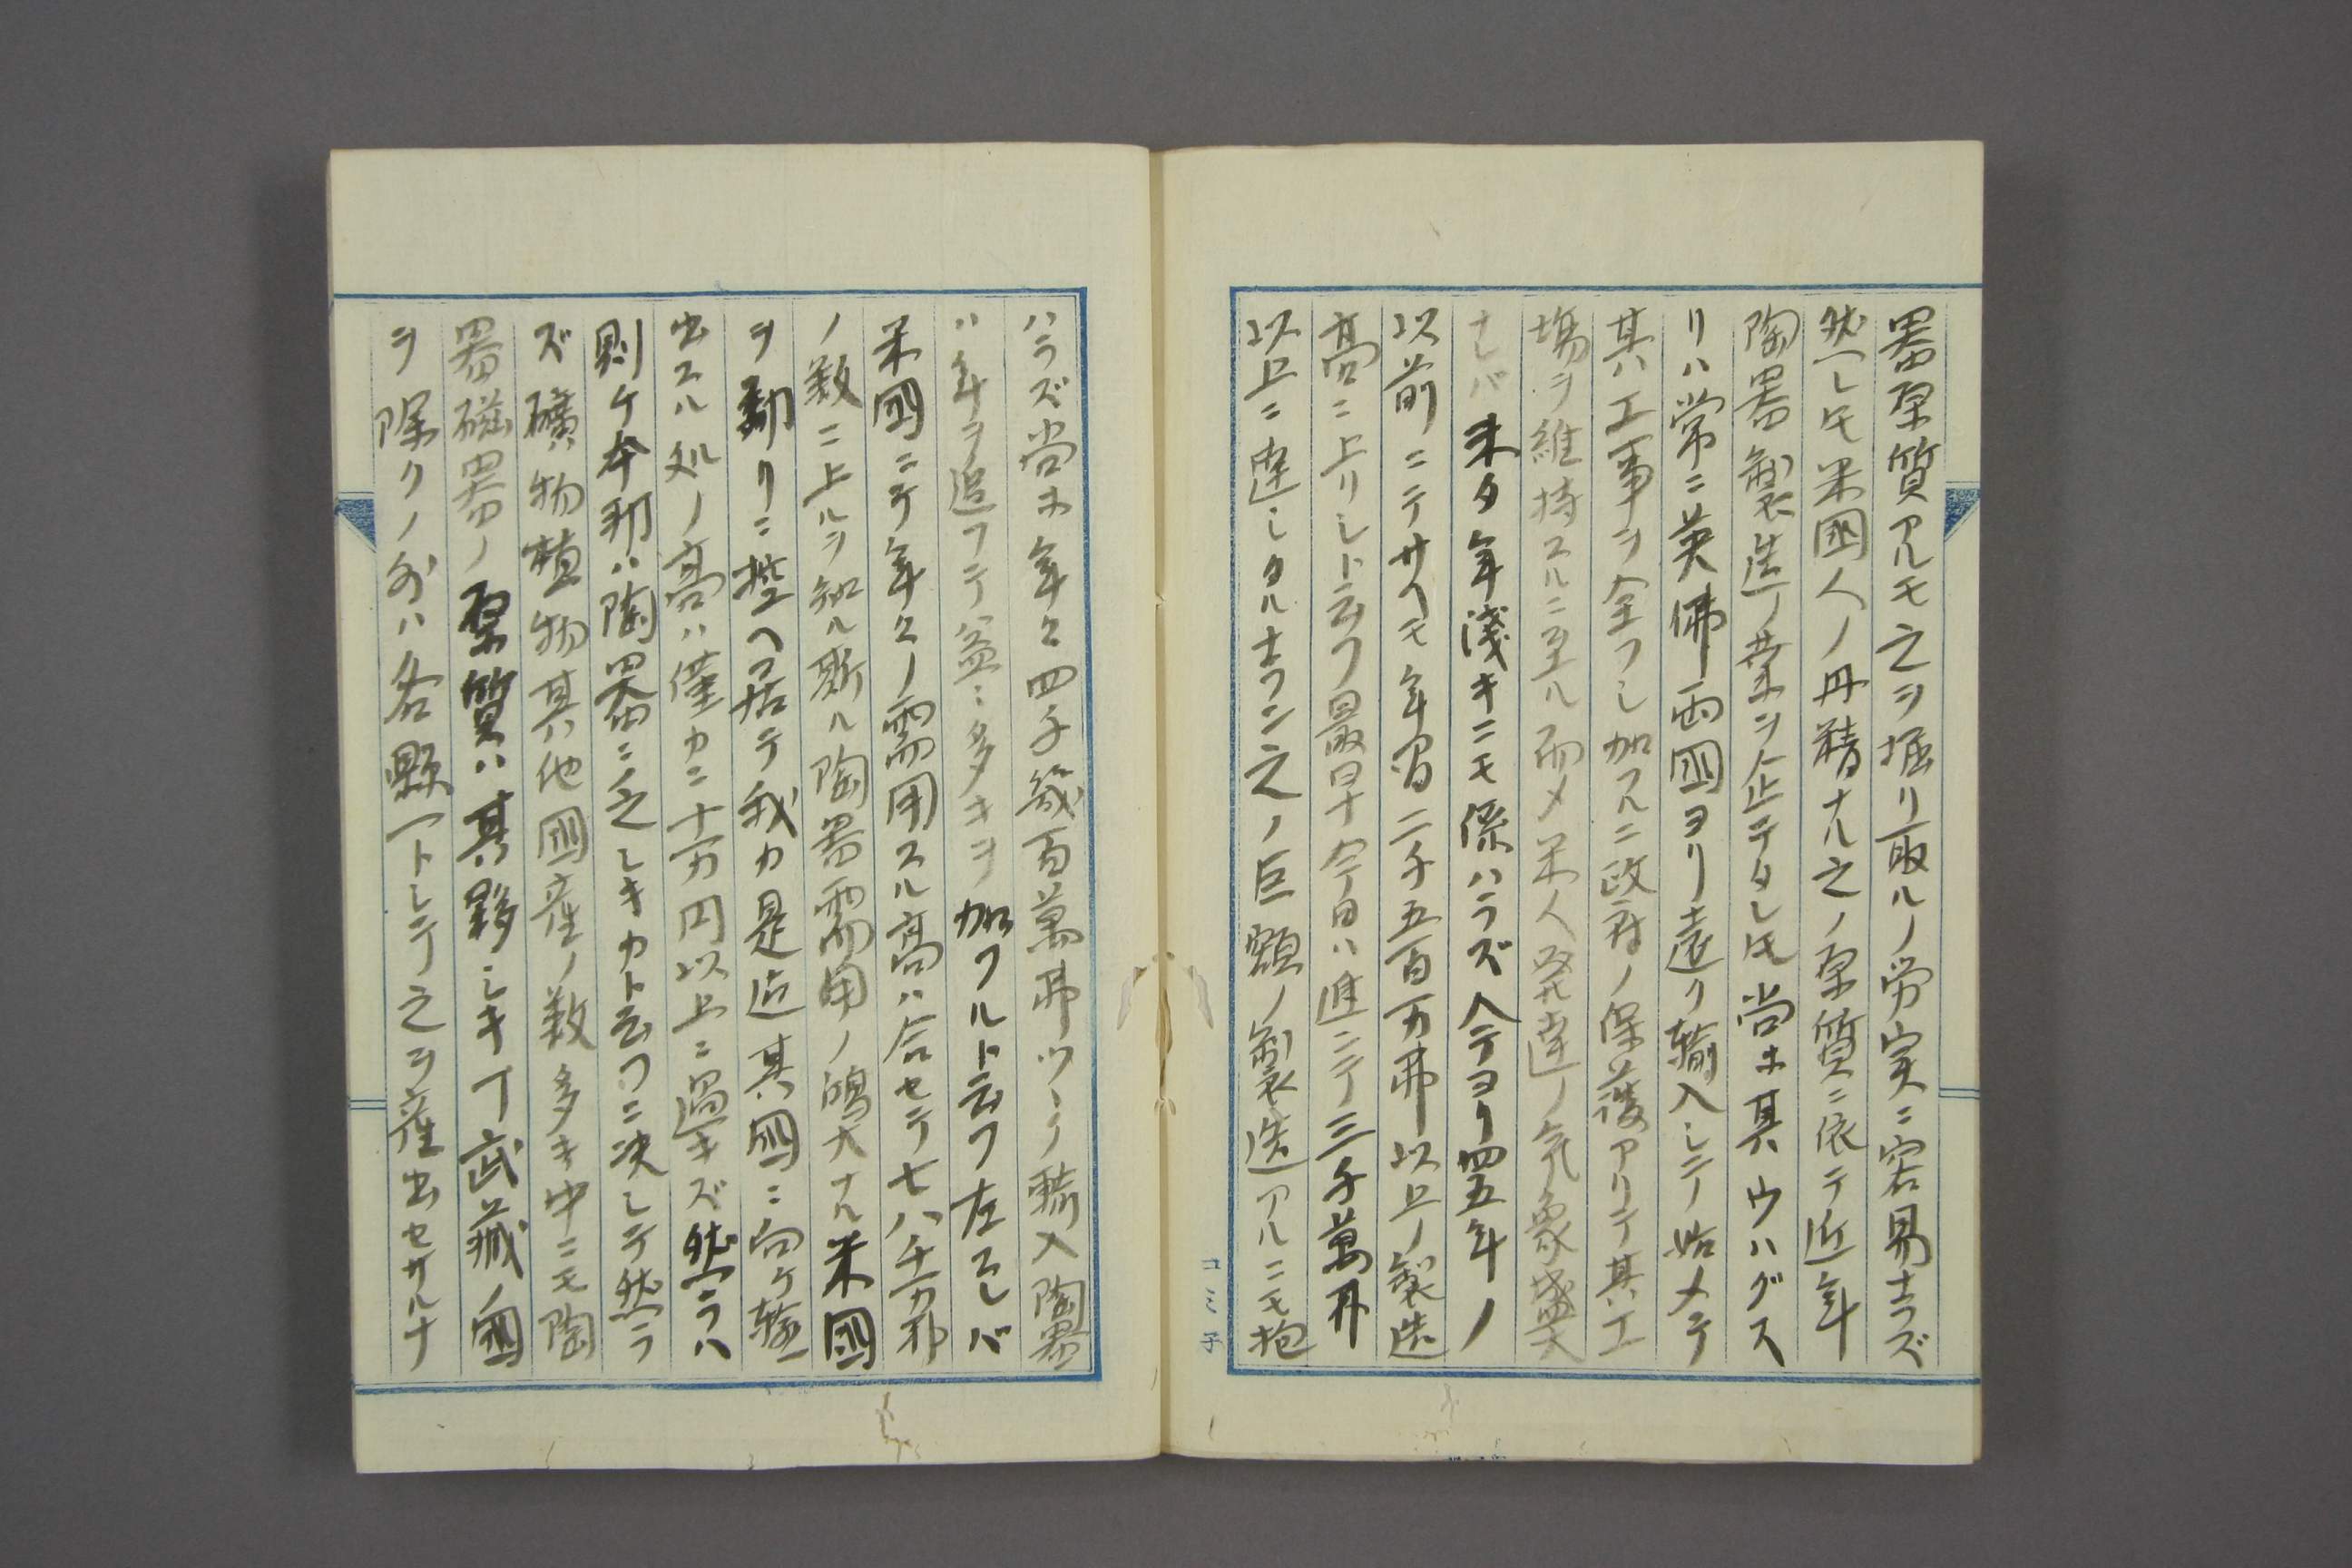 器原質アルモ之ヲ掘リ取ルノ労実ニ容易ナラズ
然レ𪜈米国人ノ丹精ナル之ノ原質ニ依テ近年
陶器製造ノ業ヲ企テタレ𪜈尚ホ其ウハグス
リハ常ニ英佛両国ヨリ遠ク輸入シテ始メテ
其工事ヲ全フシ加フルニ政府ノ保護アリテ其工
場ヲ維持スルニ至ル而メ米人発達ノ気象盛大
ナレバ未タ年浅キニモ係ハラズ今ヨリ四五年ノ
以前ニテサヘモ年留二千五百万弗以上ノ製造
高ニ上リシト云フ最早今日ハ進ンテ三千萬弗
以上ニ達シタルナラン之ノ巨額ノ製造アルニモ抱
ハラズ尚ホ年々四千幾百萬弗ツヽノ輸入陶器
ハ年ヲ追フテ益々多キヲ加フルト云フ左スレバ
米國ニテ年々ノ需用スル高ハ合セテ七八千万弗
ノ数ニ上ルヲ知ル斯ル陶器需用ノ鴻大ナル米國
ヲ隣リニ控ヘ居テ我カ是迄其國ニ向ケ輸
出スル処ノ高ハ僅カニ十万円以上ニ過キズ然ラハ
則ケ本邦ハ陶器ニ乏シキカト云フニ決シテ然ラ
ズ礦物植物其他國産ノ数多キ中ニモ陶
器磁器ノ原質ハ其夥シキヿ武蔵ノ國
ヲ除クノ外ハ各縣一トシテ之ヲ産出セサルナ
コミ子